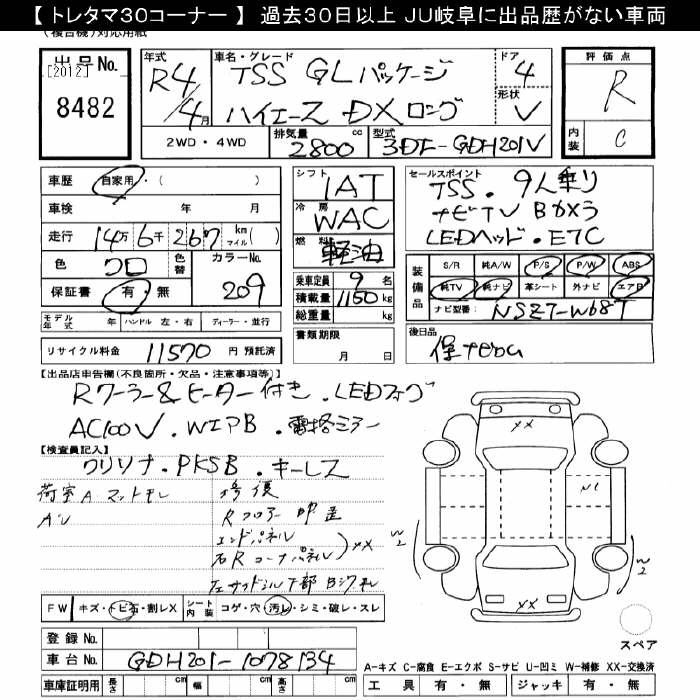 【 トレタマ30コーナー 】 過去30日以上 JU岐阜に出品歴がない車両
(複合機)対応用紙
出品No.
[2012]
8482
年式
R4/4月
車名・グレード
TSS GLパッケージ
ハイエース DXロング
ドア
4
形状
V
評価点
R
内装
C
2WD・4WD
排気量
2800cc
型式
3DF-GDH201V
車歴 自家用・( )
車検 年 月
走行 14万6千267 km マイル( )
色 クロ 色替 カラーNo. 209
保証書 有・無
モデル年式 年 ハンドル 左・右 ディーラー・並行
リサイクル料金 11570 円 預託済
シフト
IAT
冷房
WAC
燃料
軽油
乗車定員 9 名
積載量 1150 kg
総重量 kg
書類期限
月 日
セールスポイント
TSS. 9人乗り
ナビTV Bカメラ
LEDヘッド. ETC
装備品
S/R 純A/W P/S P/W ABS
純TV 純ナビ 革シート 外ナビ エアB
ナビ型番: NSZT-W68T
後日品
【出品店申告欄(不良箇所・欠品・注意事項等)】
Rクーラー&ヒーター付き.LEDフォグ
AC100V.WエアB.電格ミラー
【検査員記入】
クリソナ.PKSB.キーレス
荷室A マットモレ
修復
Rフロアー
エンドパネル
右Rコーナパネル XX
XX
W2
W2
XX
FW キズ・トビ石・割レX シート内装 コゲ・穴・汚レ・シミ・破レ・スレ
登録No.
車台No. GDH201-1078134
車庫証明用 長さ cm 幅 cm 高さ cm
スペア
A-キズ C-腐食 E-エクボ S-サビ U-凹ミ W-補修 XX-交換済
工具 有・無 ジャッキ 有・無